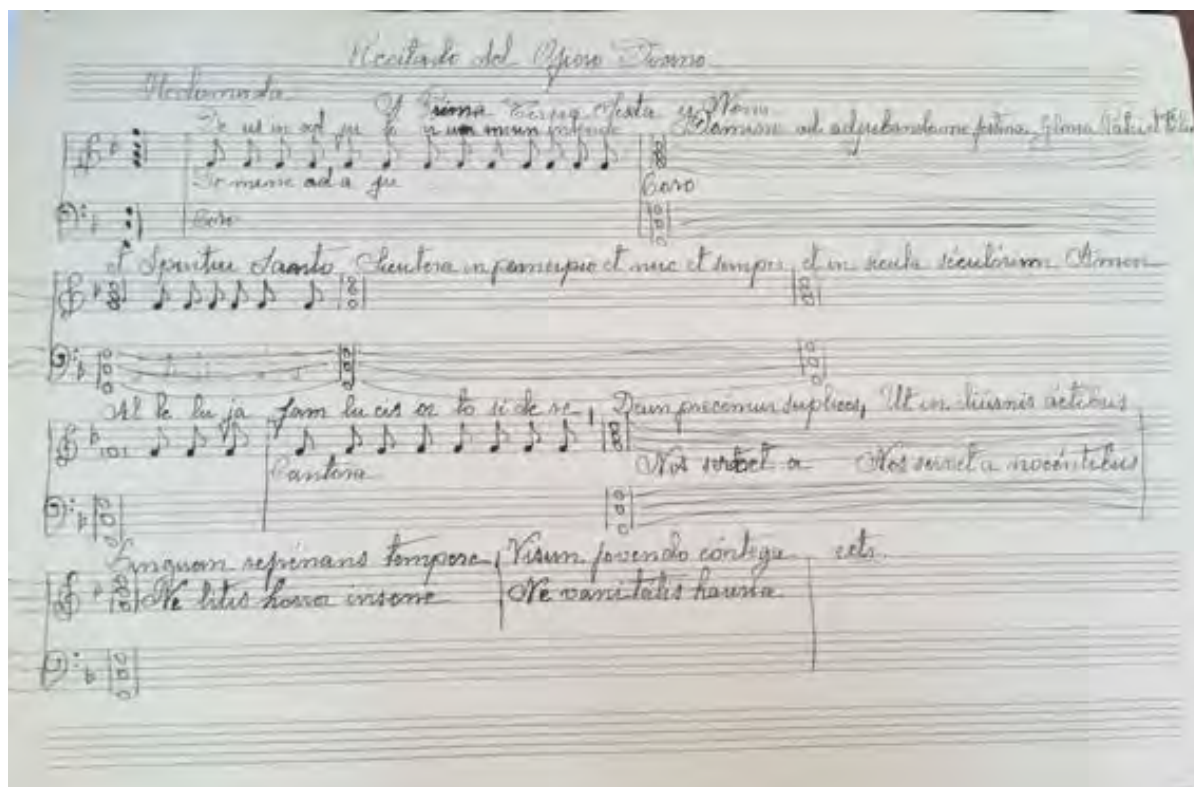 Recitado del Oficio Divino
Hedomada
y Prima Tercia Sesta y Nona
De us in ad ju to ri um meum intende Domine ad adjubandum me festina, Gloria Patri et Filio
Do mine ad a ju
Coro
Coro
et Spiritui Saanto Sicutera in pemcipio et nuc et semper, et in secula seculórum Amen
Al le lu ja Jam lu cis or to si de re, Deum precémur suplices, Ut in diúrnis áctibus
Cantora
Nos serbet a Nos servet a nocéntibus
Linguam refrénans tempere, Visum fovendo cóntega cets.
Ne litis horror insone Ne vanitátis hauria